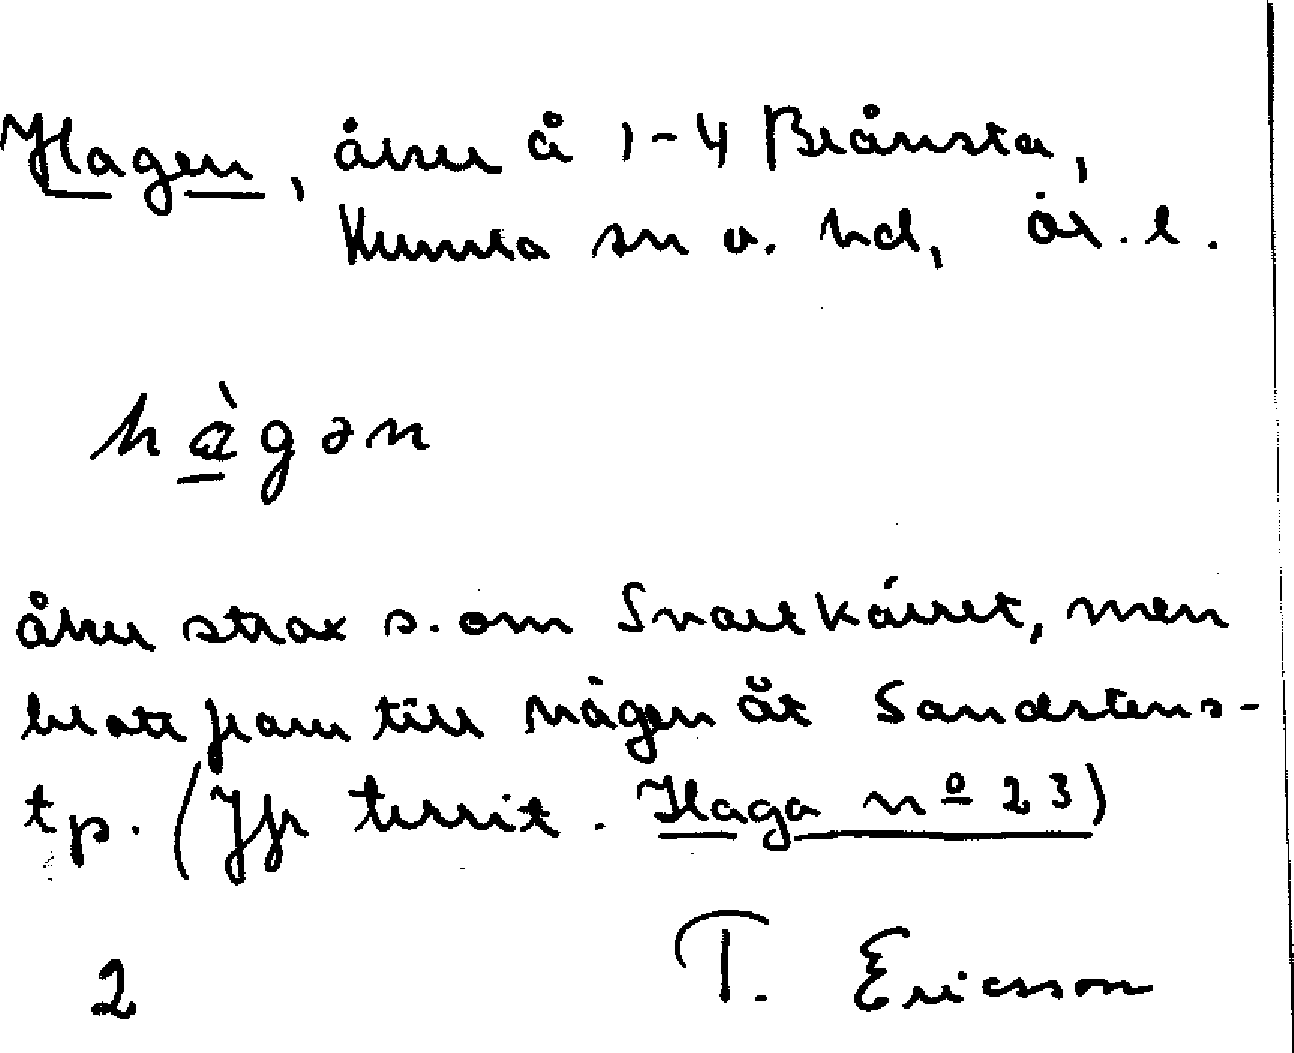 Hagen, åker å 1-4 Brånsta,
Kumla sn o. hd, ör. l.
hàgən
åker strax s. om Svartkärret, men
blott fram till vägen åt Sandstens-
tp. (Jfr territ. Haga nº 23)
2 T. Ericsson